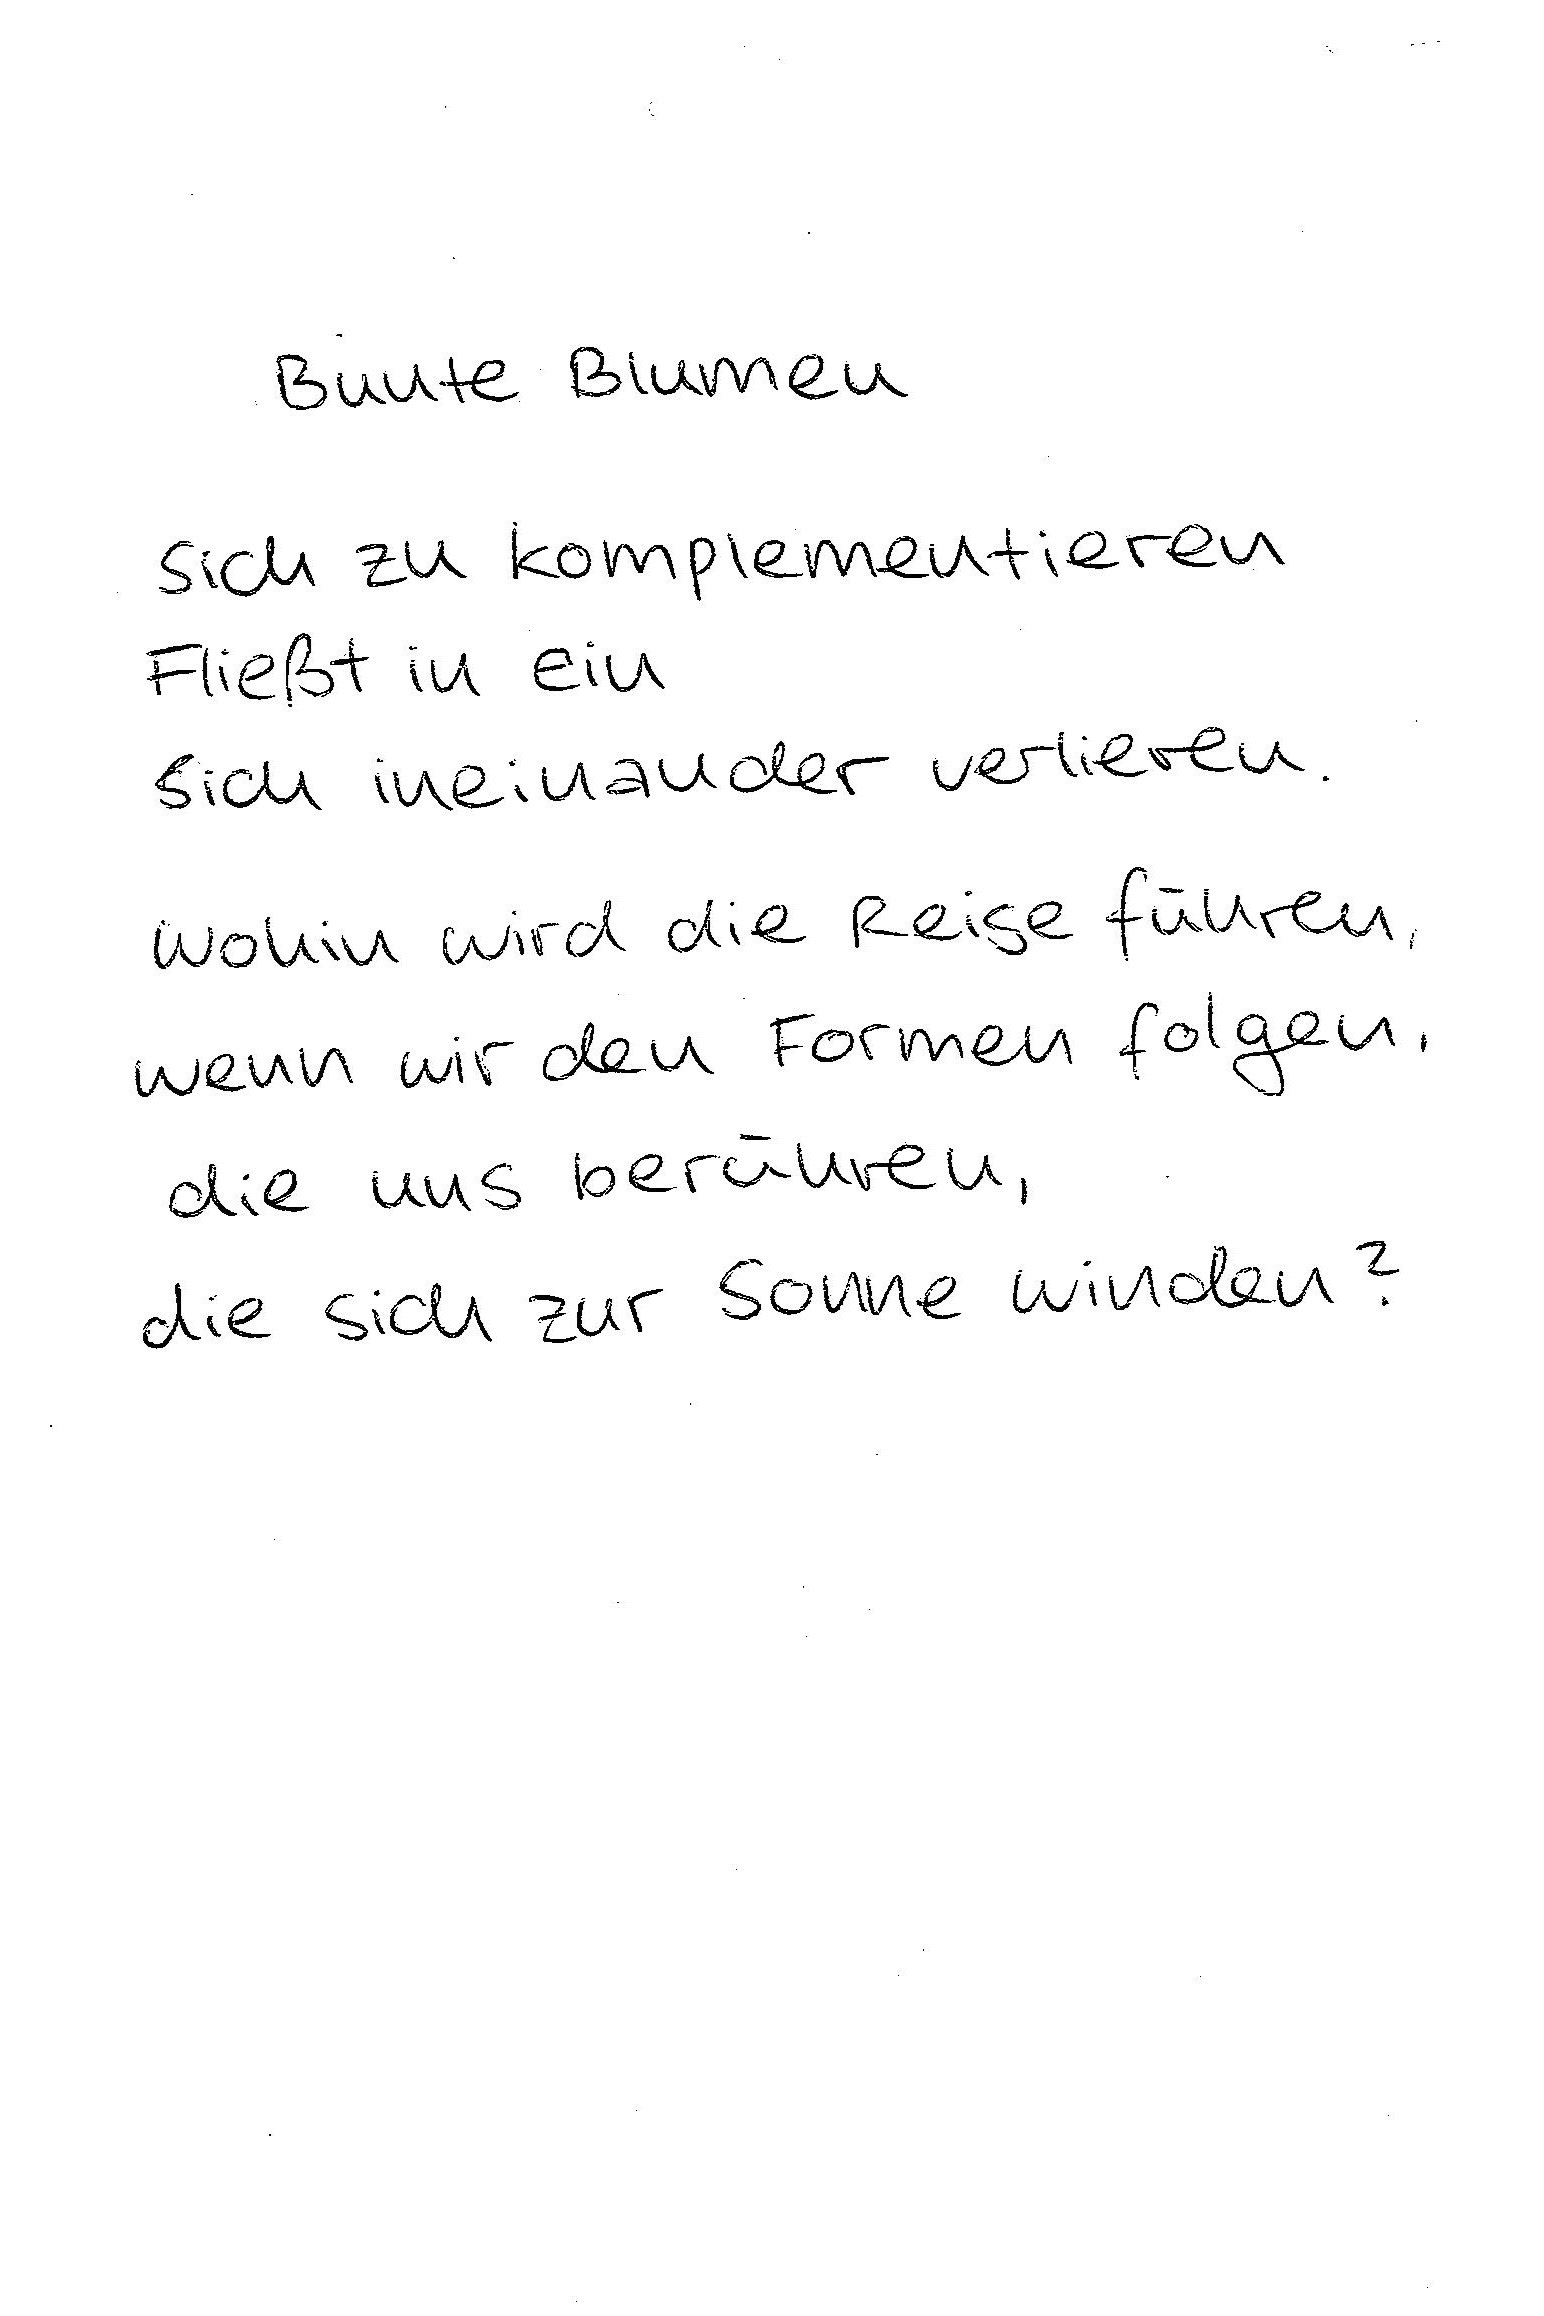 Bunte Blumen
sich zu komplementieren
Fließt in ein
sich ineinander verlieren.
wohin wird die Reise führen,
wenn wir den Formen folgen,
die uns berühren,
die sich zur Sonne winden?